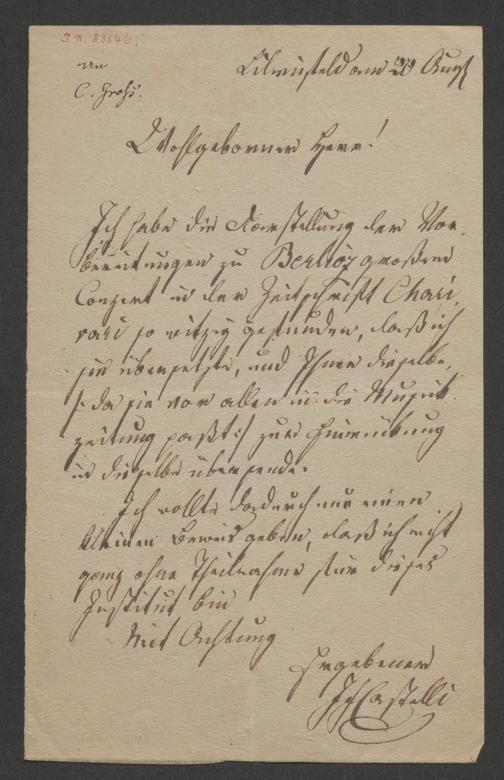 I. N. 83546
an
C. Groß.
Lilienfeld am 20 Augst
Wohlgeborner Herr!
Ich habe die Darstellung der Vor-
bereitungen zu Berlioz großem
Conzert in der Zeitschrift Chari-
vari so witzig gefunden, daß ich
sie übersetzte, und Ihnen dieselbe,
/: da sie vor allen in die Musik-
zeitung paßt :/ zur Einrückung
in dieselbe übersende.
Ich wollte dadurch nur einen
kleinen Beweis geben, daß ich nicht
ganz ohne Theilnahme für dieses
Institut bin
Mit Achtung
Ergebener
IfCastelli